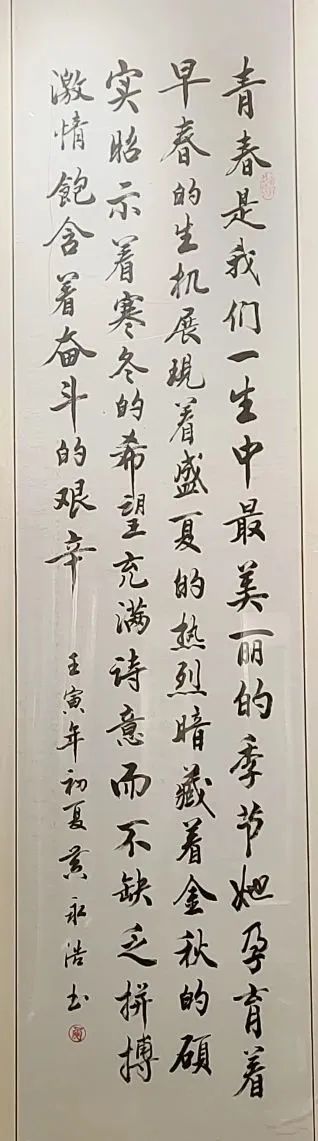 青春是我们一生中最美丽的季节她孕育着
早春的生机展現着盛夏的热烈暗藏着金秋的硕
实昭示着寒冬的希望充满诗意而不缺乏拼搏
激情飽含着奋斗的艰辛
壬寅年初夏黄永浩书